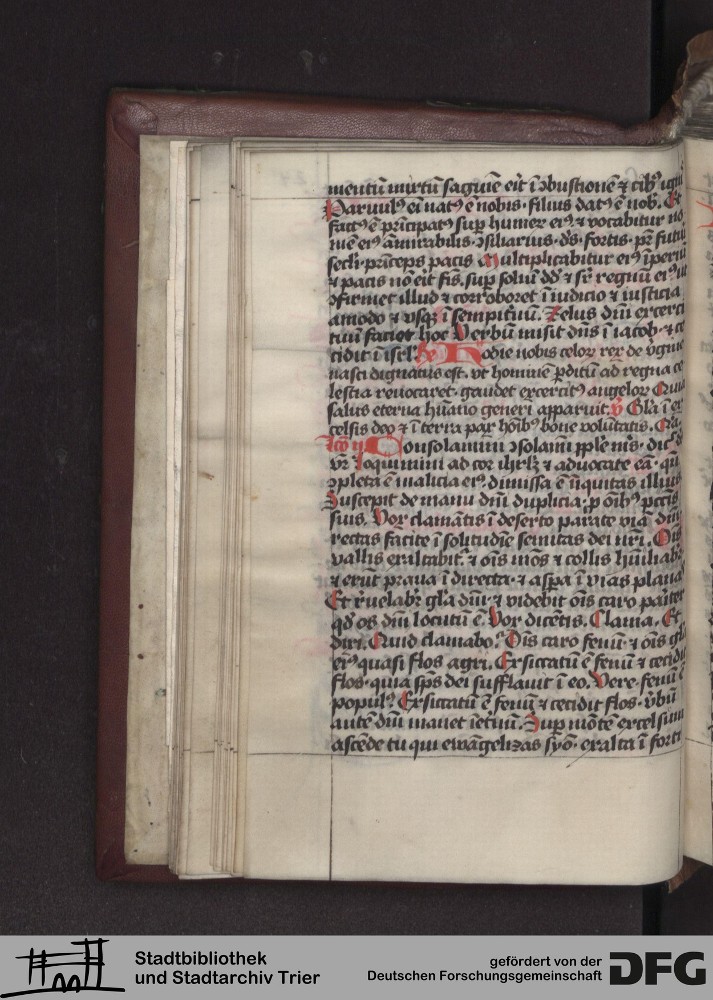 mentū mixtū saguīe erit ī ɔbustionē ⁊ cibꝰ igni
Paruulꝰ eī natꝰ ē nobis · filius datꝰ ē nob̄. Et
factꝰ ē prīcipatꝰ suꝑ humeꝝ eiꝰ ⁊ vocabitur no
mē eiꝰ ām̄irabilis · ɔsiliarius · dꝰs · fortis · pr̄ futu
secli · prīceps pacis Multiplicabitur eiꝰ īperiū
⁊ pacis nō erit fīs. suꝑ soliū dd̄ ⁊ sr̄ regnū eiꝰ ut
ɔfirmet illud ⁊ corroboret ī iudicio ⁊ iusticia
amodo ⁊ vsqꝫ ī sempitnū. Zelus dn̄i exerci
tuū faciet hoc Verbū misit dn̄s ī iacob · ⁊ ce
cidit ī isrl̄. Hodie nobis celoꝝ rex de ꝟgine
nasci dignatus est · vt hominē ꝑditū ad regna ce
lestia reuocaret · gaudet exercitꝰ angeloꝝ Quia
salus eterna hūano generi apparuit. ℣ Gl̄a ī ex
celsis deo ⁊ ī terra pax hoībꝰ bone volūtatis. Qia.
Consolamini ɔsolamī pple mꝰs · dic̄ dꝰ
vr̄. Loquimini ad cor ihrlꝫ ⁊ aduocate eā · qm̄
ɔpleta ē malicia eiꝰ · dimissa ē iīquitas illius
Suscepit de manu dn̄i duplicia · ꝓ oībꝰ pctīs
suis. Vox clamātis ī deserto parate viā dn̄i
rectas facite ī solitudīe semitas dei nr̄i. Oīs
vallis exaltabit᷑ · ⁊ oīs mōs ⁊ collis hūiliabꝫ
⁊ erūt praua ī directa · ⁊ asꝑa ī vias planas
Et r̄uelabꝫ gl̄a dn̄i · ⁊ videbit oīs caro pariter
qd̓ os dn̄i locutū ē. Vox dicētis. Clama. Et
dixi. Quid clamabo? Oīs caro fenū · ⁊ oīs gl̄a
eiꝰ quasi flos agri. Exsiccatū ē fenū ⁊ cecidit
flos · quia sp̄s dei sufflauit ī eo. Vere · fenū ē
populꝰ. Exsiccatū ē fenū ⁊ cecidit flos · ꝟbū
autē dn̄i manet īetnū. Sup mōtē excelsum
ascēde tu qui ewāgelizas syō · exalta ī forti
Stadtbibliothek
und Stadtarchiv Trier
gefördert von der
Deutschen Forschungsgemeinschaft
DFG